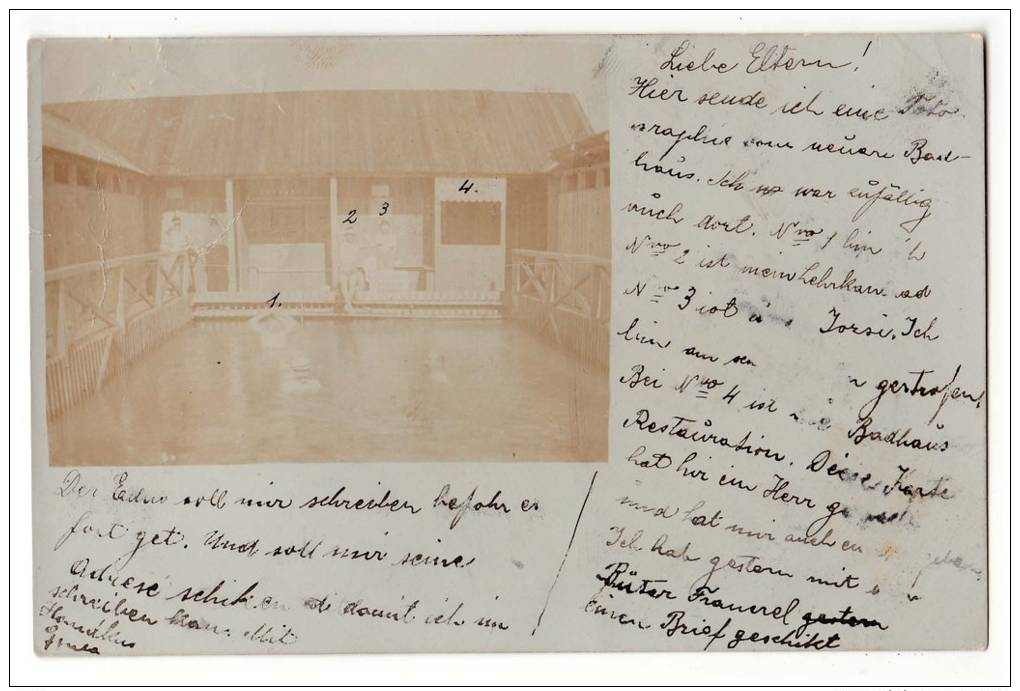 1.
2
3
4.
Liebe Eltern!
Hier sende ich eine Foto-
graphie vom neuen Bad-
haus. Ich war zufällig
auch dort. Nro 1 bin ich
Nro 2 ist mein Lehrkam.
Nro 3 ist Jorsi. Ich
bin am gertrofen.
Bei Nro 4 ist Badhaus
Restauration. Diese Karte
hat hir ein Herr
und hat mir auch
Ich hab gestern mit
Frauerel gestern
einen Brief geschikt
Der soll mir schreiben befohr er
fort get. Und soll mir seine
Adrese schiken damit ich im
schreiben kan. Mit